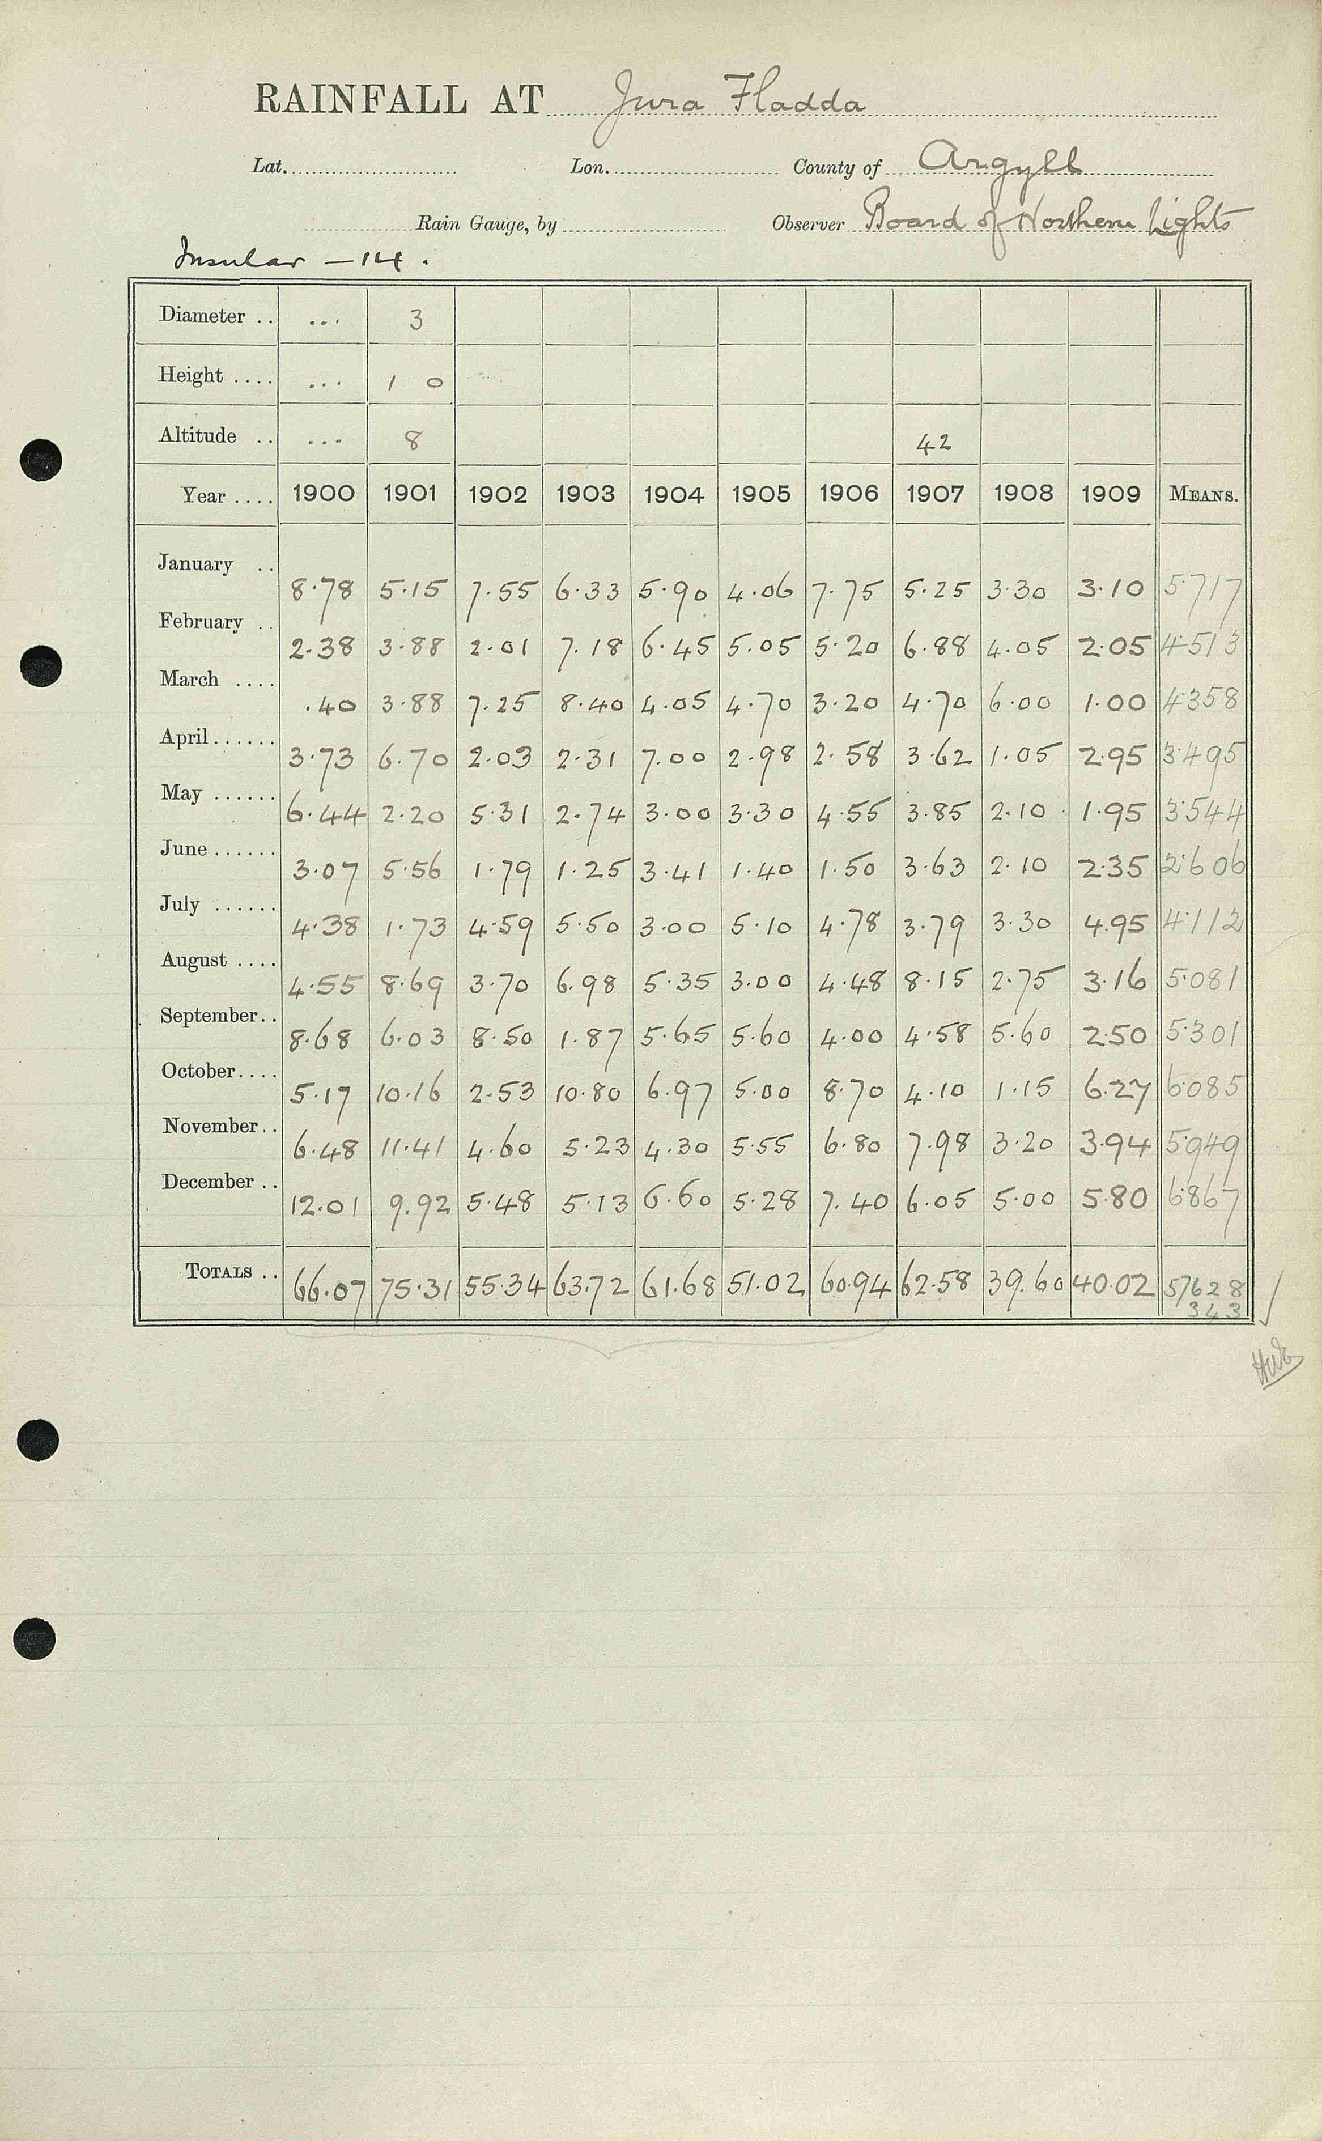 RAINFALL AT Jura Fladda
Lat. Lon. County of Argyll
Rain Gauge, by Observer Board of Northern Lights
Insular – 14.
Diameter .. ... 3
Height .... ... 1 0
Altitude .. ... 8 42
Year .... 1900 1901 1902 1903 1904 1905 1906 1907 1908 1909 MEANS.
January .. 8.78 5.15 7.55 6.33 5.90 4.06 7.75 5.25 3.30 3.10 5.717
February .. 2.38 3.88 2.01 7.18 6.45 5.05 5.20 6.88 4.05 2.05 4.513
March .... .40 3.88 7.25 8.40 4.05 4.70 3.20 4.70 6.00 1.00 4.358
April...... 3.73 6.70 2.03 2.31 7.00 2.98 2.58 3.62 1.05 2.95 3.495
May ...... 6.44 2.20 5.31 2.74 3.00 3.30 4.55 3.85 2.10 1.95 3.544
June...... 3.07 5.56 1.79 1.25 3.41 1.40 1.50 3.63 2.10 2.35 2.606
July ...... 4.38 1.73 4.59 5.50 3.00 5.10 4.78 3.79 3.30 4.95 4.112
August .... 4.55 8.69 3.70 6.98 5.35 3.00 4.48 8.15 2.75 3.16 5.081
September.. 8.68 6.03 8.50 1.87 5.65 5.60 4.00 4.58 5.60 2.50 5.301
October.... 5.17 10.16 2.53 10.80 6.97 5.00 8.70 4.10 1.15 6.27 6.085
November.. 6.48 11.41 4.60 5.23 4.30 5.55 6.80 7.98 3.20 3.94 5.949
December .. 12.01 9.92 5.48 5.13 6.60 5.28 7.40 6.05 5.00 5.80 6.867
TOTALS .. 66.07 75.31 55.34 63.72 61.68 51.02 60.94 62.58 39.60 40.02 57628
343